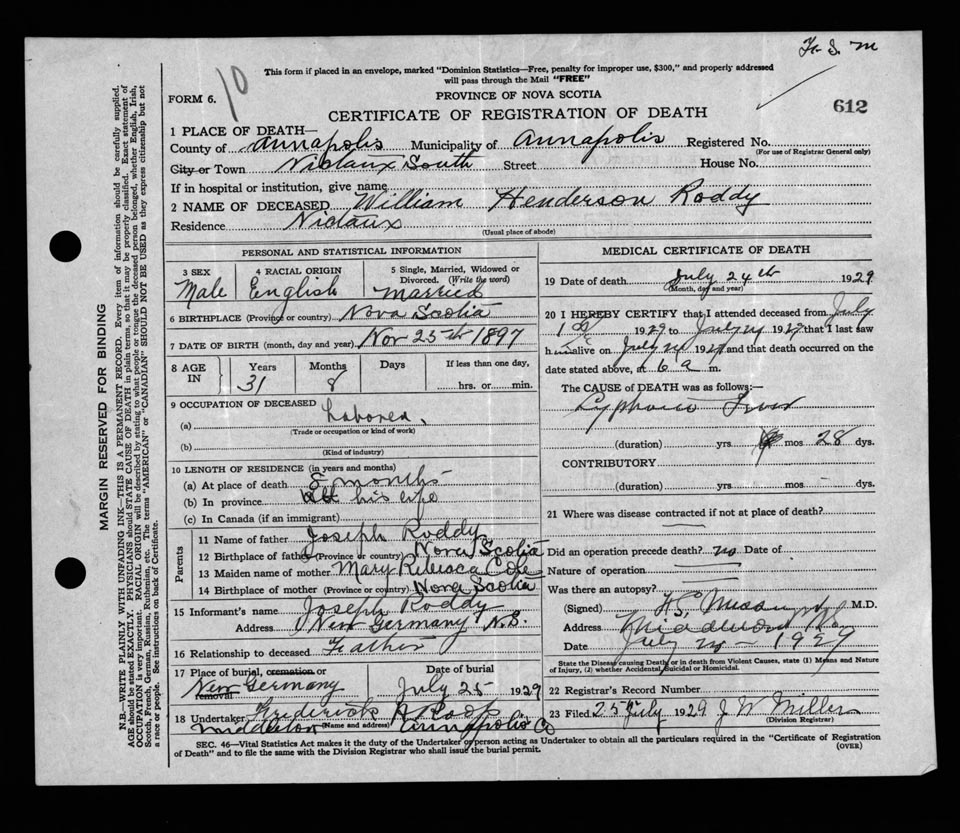 F. S. M
This form if placed in an envelope, marked "Dominion Statistics—Free, penalty for improper use, $300," and properly addressed
will pass through the Mail "FREE"
10
FORM 6.
PROVINCE OF NOVA SCOTIA
612
CERTIFICATE OF REGISTRATION OF DEATH
1 PLACE OF DEATH—
County of Annapolis Municipality of Annapolis Registered No.
(For use of Registrar General only)
City or Town Nictaux South Street House No.
If in hospital or institution, give name
2 NAME OF DECEASED William Henderson Roddy
Residence Nictaux
(Usual place of abode)
MARGIN RESERVED FOR BINDING
N.B.—WRITE PLAINLY WITH UNFADING INK—THIS IS A PERMANENT RECORD. Every item of information should be carefully supplied.
AGE should be stated EXACTLY. PHYSICIANS should STATE CAUSE OF DEATH in plain terms, so that it may be properly classified. Exact statement of
OCCUPATION is very important. RACIAL ORIGIN will be described by stating to what people or tongue the deceased person belonged, whether English, Irish,
Scotch, French, German, Russian, Ruthenian, etc. The terms "AMERICAN" or "CANADIAN" SHOULD NOT BE USED as they express citizenship but not
a race or people. See instructions on back of Certificate.
PERSONAL AND STATISTICAL INFORMATION
3 SEX
Male
4 RACIAL ORIGIN
English
5 Single, Married, Widowed or
Divorced. (Write the word)
Married
6 BIRTHPLACE (Province or country) Nova Scotia
7 DATE OF BIRTH (month, day and year) Nov 25th 1897
8 AGE IN
Years
31
Months
8
Days
If less than one day,
hrs. or min.
9 OCCUPATION OF DECEASED
(a) Laborer
(Trade or occupation or kind of work)
(b)
(Kind of industry)
10 LENGTH OF RESIDENCE (in years and months)
(a) At place of death 8 months
(b) In province his life
(c) In Canada (if an immigrant)
Parents
11 Name of father Joseph Roddy
12 Birthplace of father (Province or country) Nova Scotia
13 Maiden name of mother Mary Rebecca
14 Birthplace of mother (Province or country) Nova Scotia
15 Informant's name Joseph Roddy
Address New Germany N.S.
16 Relationship to deceased Father
17 Place of burial, cremation or
removal
New Germany
Date of burial
July 25 1929
18 Undertaker Frederick A Roop
(Name and address)
Middleton Annapolis Co
MEDICAL CERTIFICATE OF DEATH
19 Date of death July 24th 1929
(Month, day and year)
20 I HEREBY CERTIFY that I attended deceased from July
1929 to July 24 1929 that I last saw
him alive on July 1929 and that death occurred on the
date stated above, at 6 a m.
The CAUSE of DEATH was as follows:—
Typhoid Fever
(duration) yrs mos 28 dys.
CONTRIBUTORY
(duration) yrs. mos dys.
21 Where was disease contracted if not at place of death?
Did an operation precede death? no Date of
Nature of operation
Was there an autopsy?
(Signed) M.D.
Address
Date July 1929
State the Disease causing Death, or in death from Violent Causes, state (1) Means and Nature
of Injury, (2) whether Accidental, Suicidal or Homicidal.
22 Registrar's Record Number
23 Filed 25th July 1929 J W Miller
(Division Registrar)
SEC. 46—Vital Statistics Act makes it the duty of the Undertaker or person acting as Undertaker to obtain all the particulars required in the "Certificate of Registration
of Death" and to file the same with the Division Registrar who shall issue the burial permit.
(OVER)